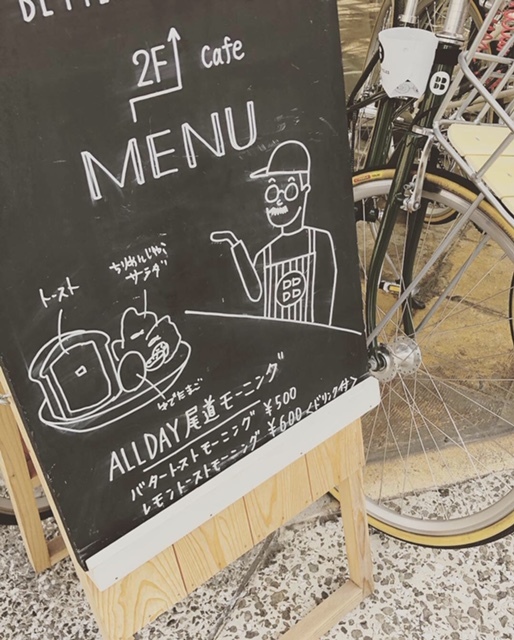 2F
Cafe
MENU
トースト
ちりめんじゃこ
サラダ
ゆでたまご
ALLDAY尾道モーニング
バタートーストモーニング ¥500
レモントーストモーニング ¥600 <ドリンク付>